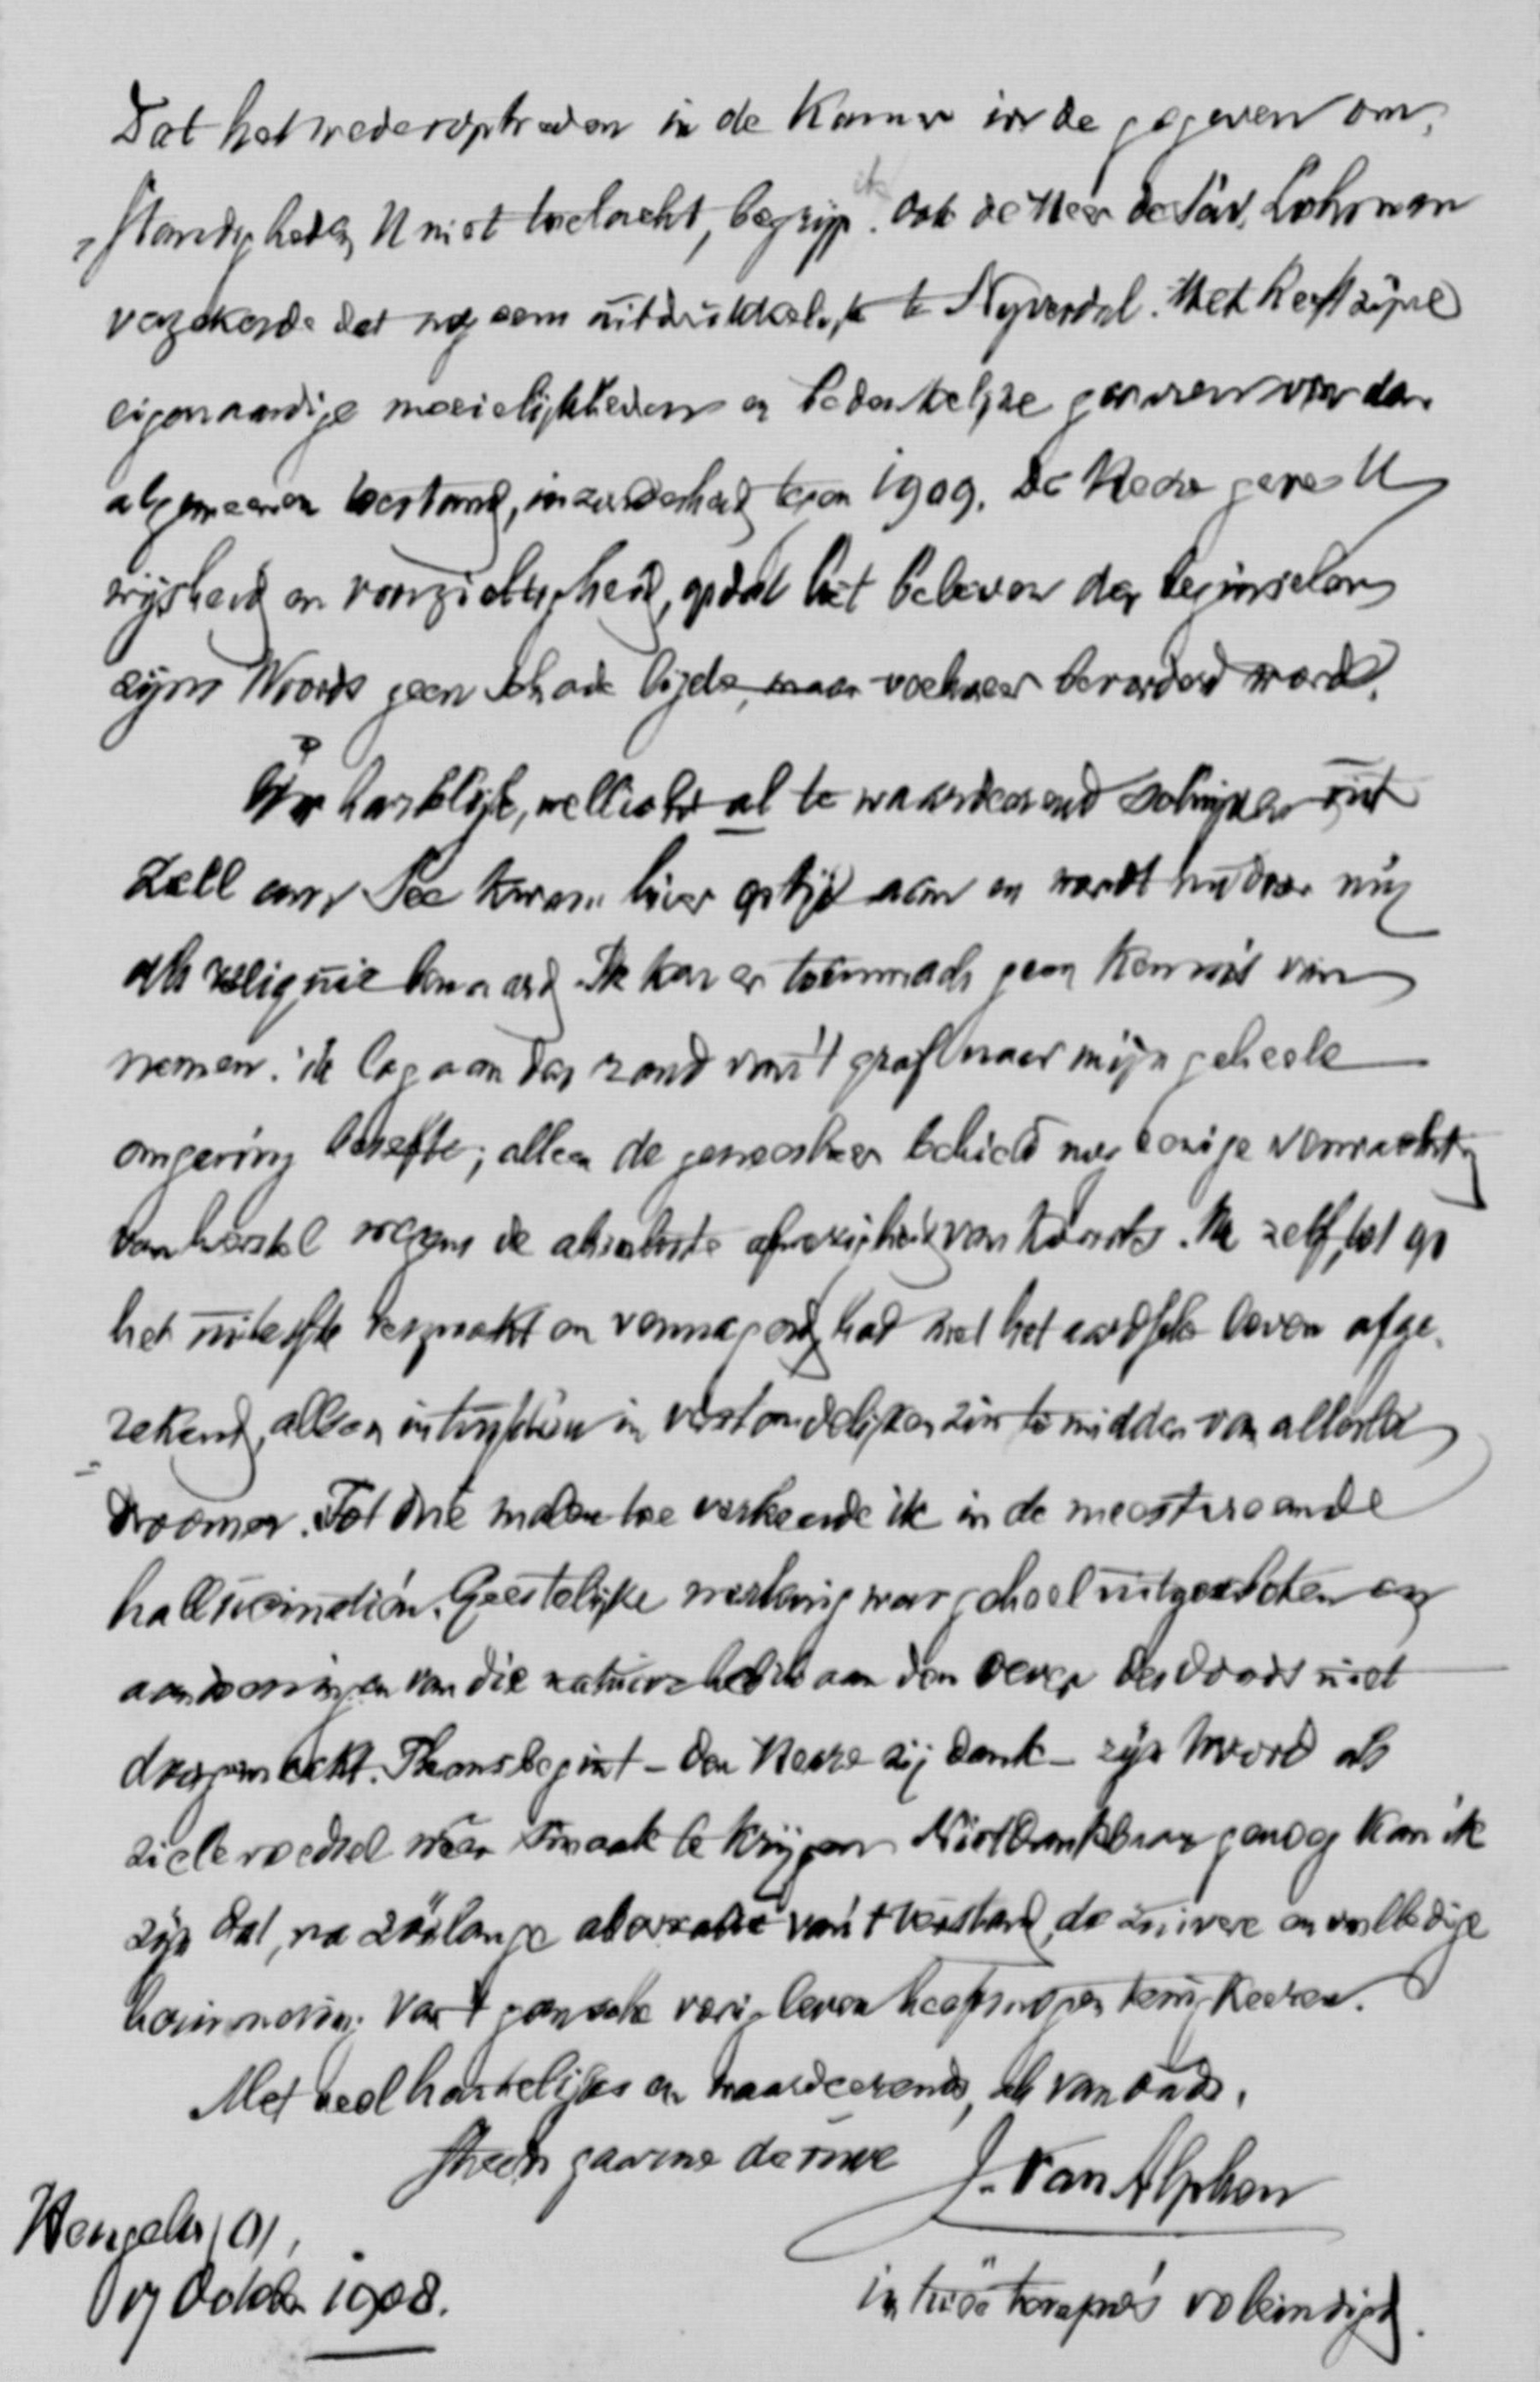 Dat het wederoptreden in de Kamer in de gegeven om-
standigheden U niet toelacht, begrijp ik. Ook de Heer de Sav. Lohman
verzekerde dat nog eens uitdrukkelijk te Nijverdal. Het heeft zijne
eigenaardige moeielijkheden en bedenkelijke gevaren voor den
algemeenen toestand, inzonderheid tegen 1909. De Heere geve U
wijsheid en voorzichtigheid, opdat het beleven der beginselen
zijns Woords geen schade lijde, maar veeleer bevorderd worde.
Uw hartelijk, wellicht al te waardeerend schrijven uit
Zell am See kwam hier op tijd aan en wordt nu door mij
als reliquie bewaard. Ik kon er toenmaals geen kennis van
nemen: ik lag aan den rand van 't graf naar mijn geheele
omgeving besefte; alleen de geneesheer behield nog eenige verwachting
van herstel wegens de absolute afwezigheid van koorts. Ik zelf, tot op
het uiterste verzwakt en vermagerd, had met het aardsche leven afge-
rekend, alleen in verstandelijken zin te midden van allerlei
droomen. Tot drie malen toe verkeerde ik in de meest vreemde
hallucinatiën. Geestelijke werking was geheel uitgesloten en
aandoeningen van die natuur heb ik aan den oever des doods niet
doorgemaakt. Thans begint – den Heere zij dank – zijn Woord als
zielevoedsel weer smaak te krijgen. Niet dankbaar genoeg kan ik
zijn dat, na zóó lange aberratie van 't verstand, de zuivere en volledige
herinnering van 't gansche vorig leven heeft mogen terugkeeren.
Met veel hartelijks en waardeerends, als van ouds,
steeds gaarne de Uwe J. van Alphen
Hengelo, (O),
17 October 1908.
in twee tempo's voleindigd.